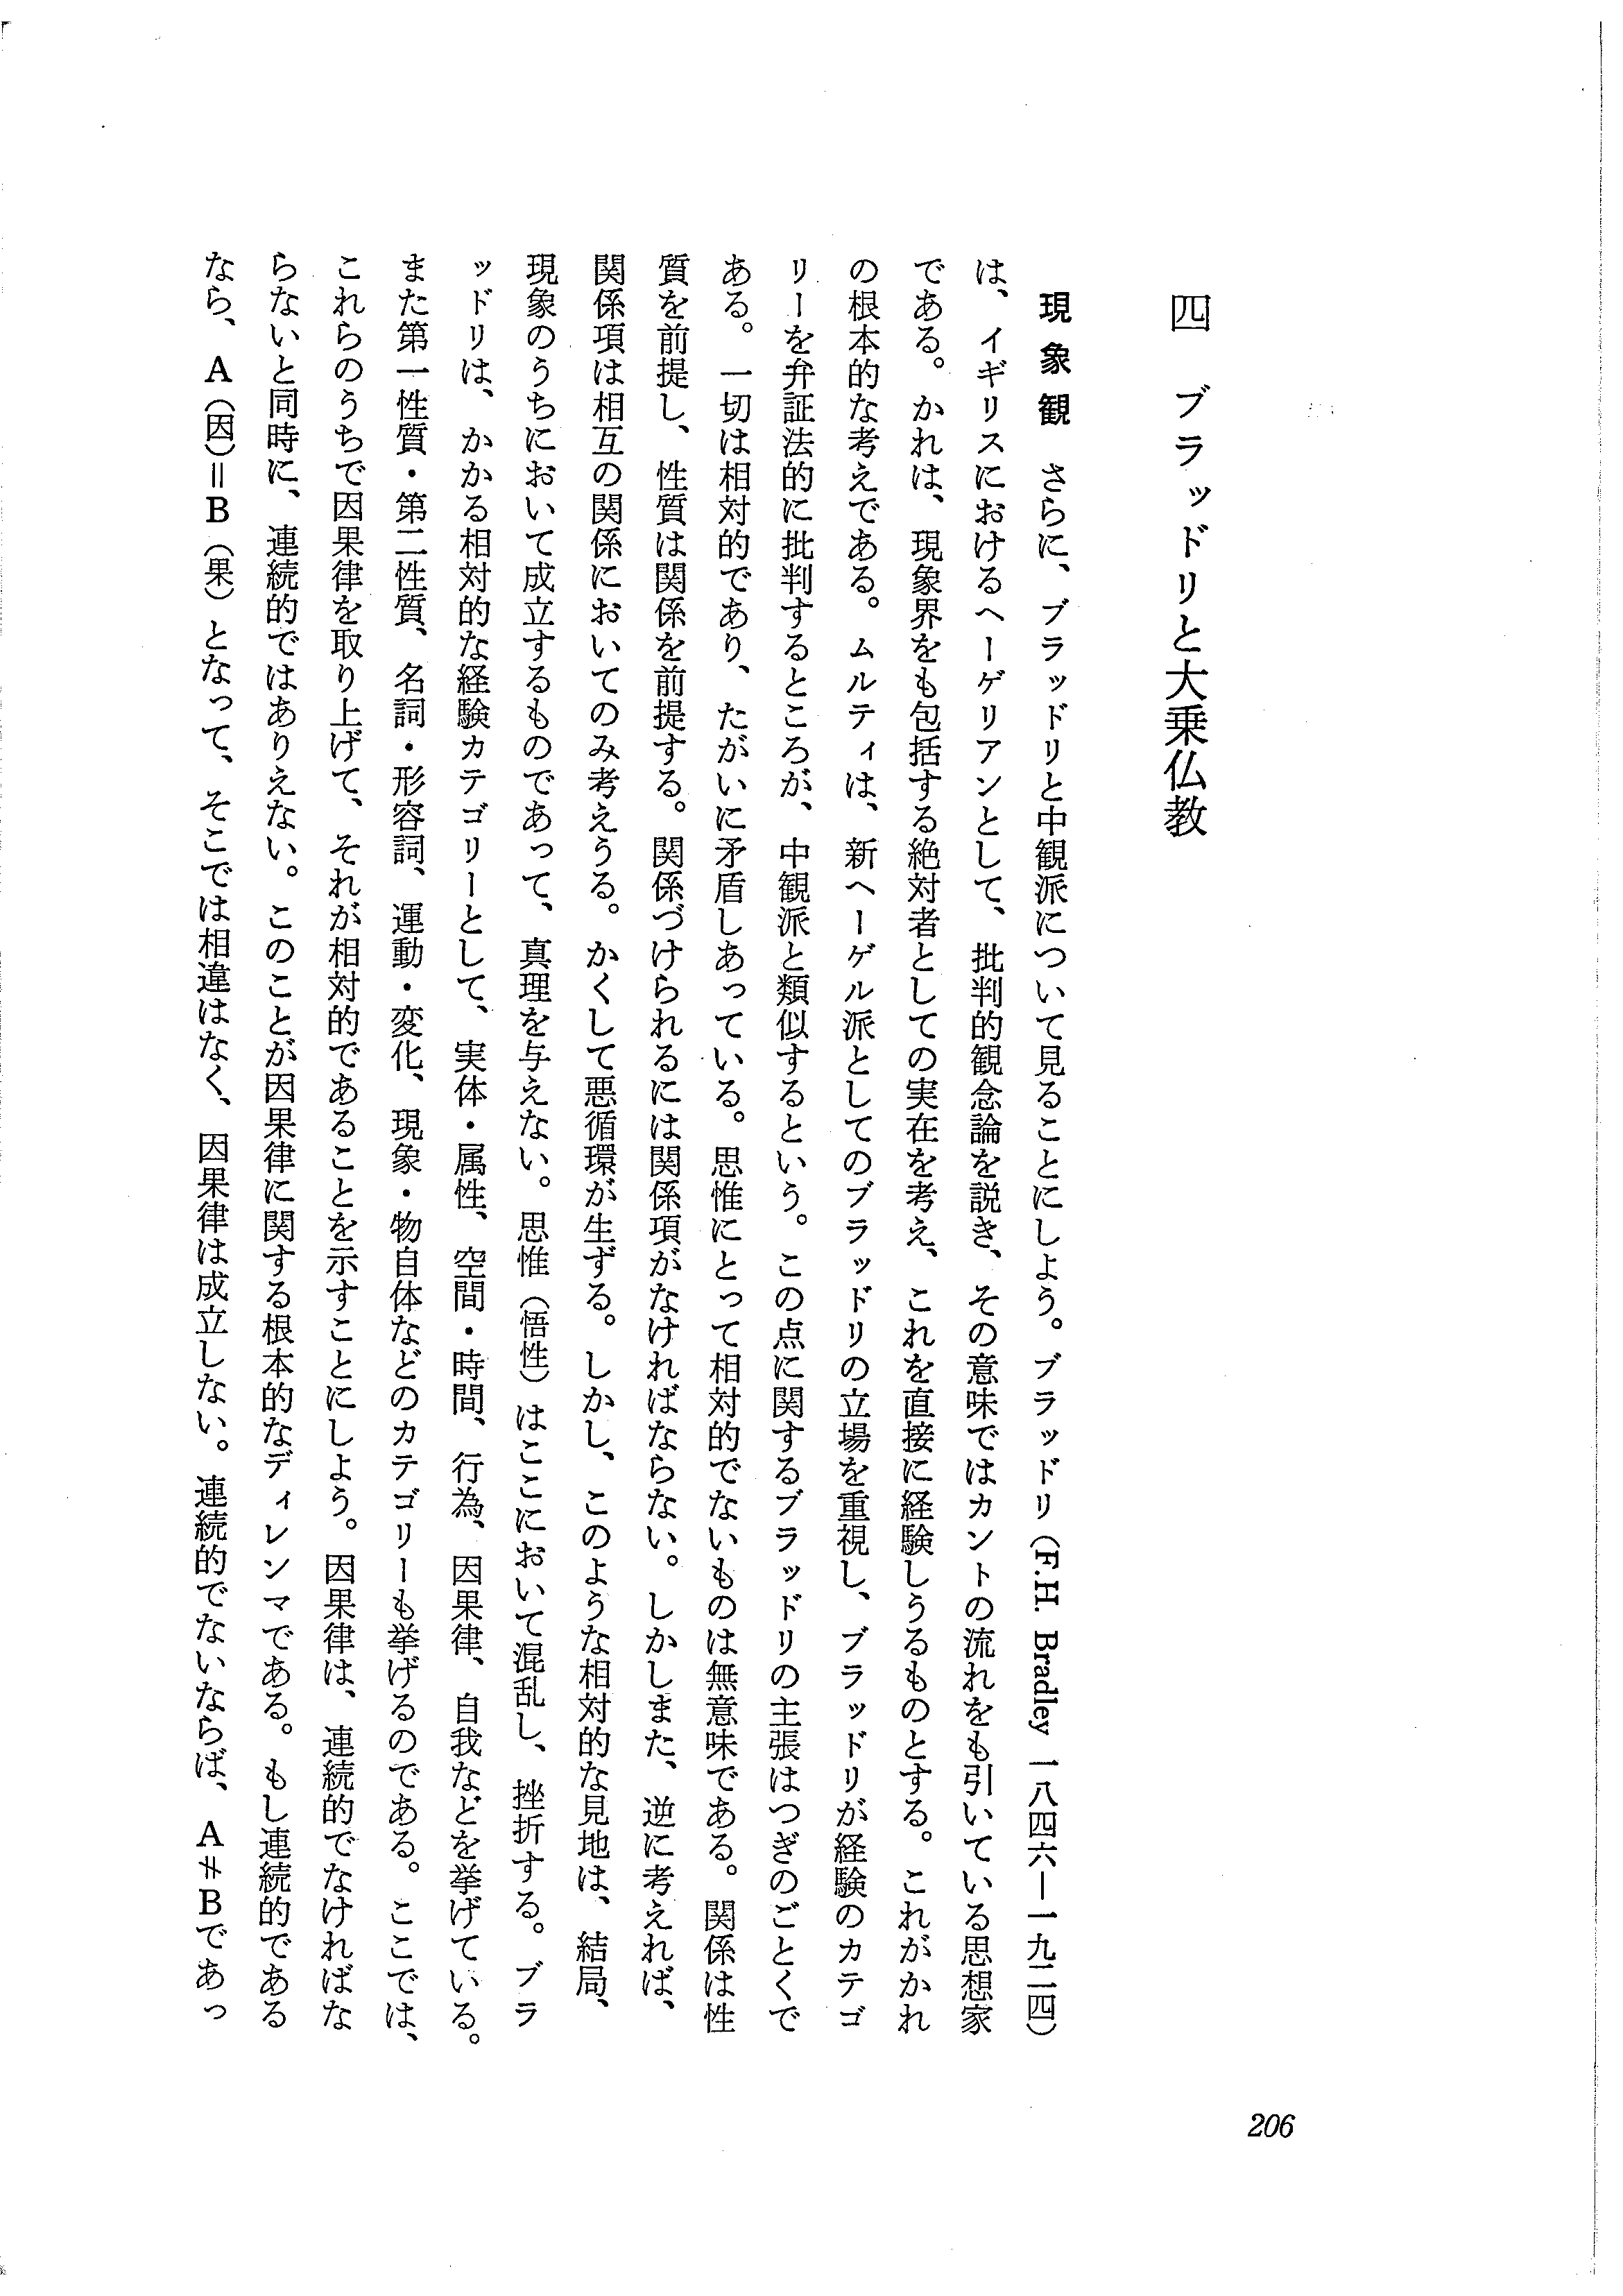 四　ブラッドリと大乗仏教
現象観　さらに、ブラッドリと中観派について見ることにしよう。ブラッドリ（F.H. Bradley 一八四六―一九二四）
は、イギリスにおけるヘーゲリアンとして、批判的観念論を説き、その意味ではカントの流れをも引いている思想家
である。かれは、現象界をも包括する絶対者としての実在を考え、これを直接に経験しうるものとする。これがかれ
の根本的な考えである。ムルティは、新ヘーゲル派としてのブラッドリの立場を重視し、ブラッドリが経験のカテゴ
リーを弁証法的に批判するところが、中観派と類似するという。この点に関するブラッドリの主張はつぎのごとくで
ある。一切は相対的であり、たがいに矛盾しあっている。思惟にとって相対的でないものは無意味である。関係は性
質を前提し、性質は関係を前提する。関係づけられるには関係項がなければならない。しかしまた、逆に考えれば、
関係項は相互の関係においてのみ考えうる。かくして悪循環が生ずる。しかし、このような相対的な見地は、結局、
現象のうちにおいて成立するものであって、真理を与えない。思惟（悟性）はここにおいて混乱し、挫折する。ブラ
ッドリは、かかる相対的な経験カテゴリーとして、実体・属性、空間・時間、行為、因果律、自我などを挙げている。
また第一性質・第二性質、名詞・形容詞、運動・変化、現象・物自体などのカテゴリーも挙げるのである。ここでは、
これらのうちで因果律を取り上げて、それが相対的であることを示すことにしよう。因果律は、連続的でなければな
らないと同時に、連続的ではありえない。このことが因果律に関する根本的なディレンマである。もし連続的である
なら、A（因）＝B（果）となって、そこでは相違はなく、因果律は成立しない。連続的でないならば、A≠Bであっ
206